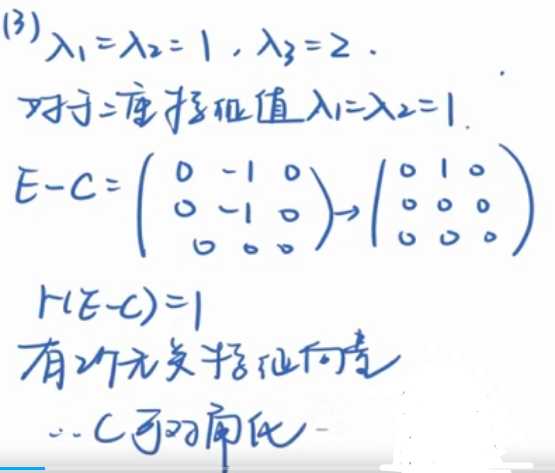 (3) λ₁=λ₂=1, λ₃=2.
对于二重特征值λ₁=λ₂=1.
E-C=(0 -1 0
0 -1 0
0 0 0)→(0 1 0
0 0 0
0 0 0)
r(E-C)=1
有2个无关特征向量
∴C可对角化